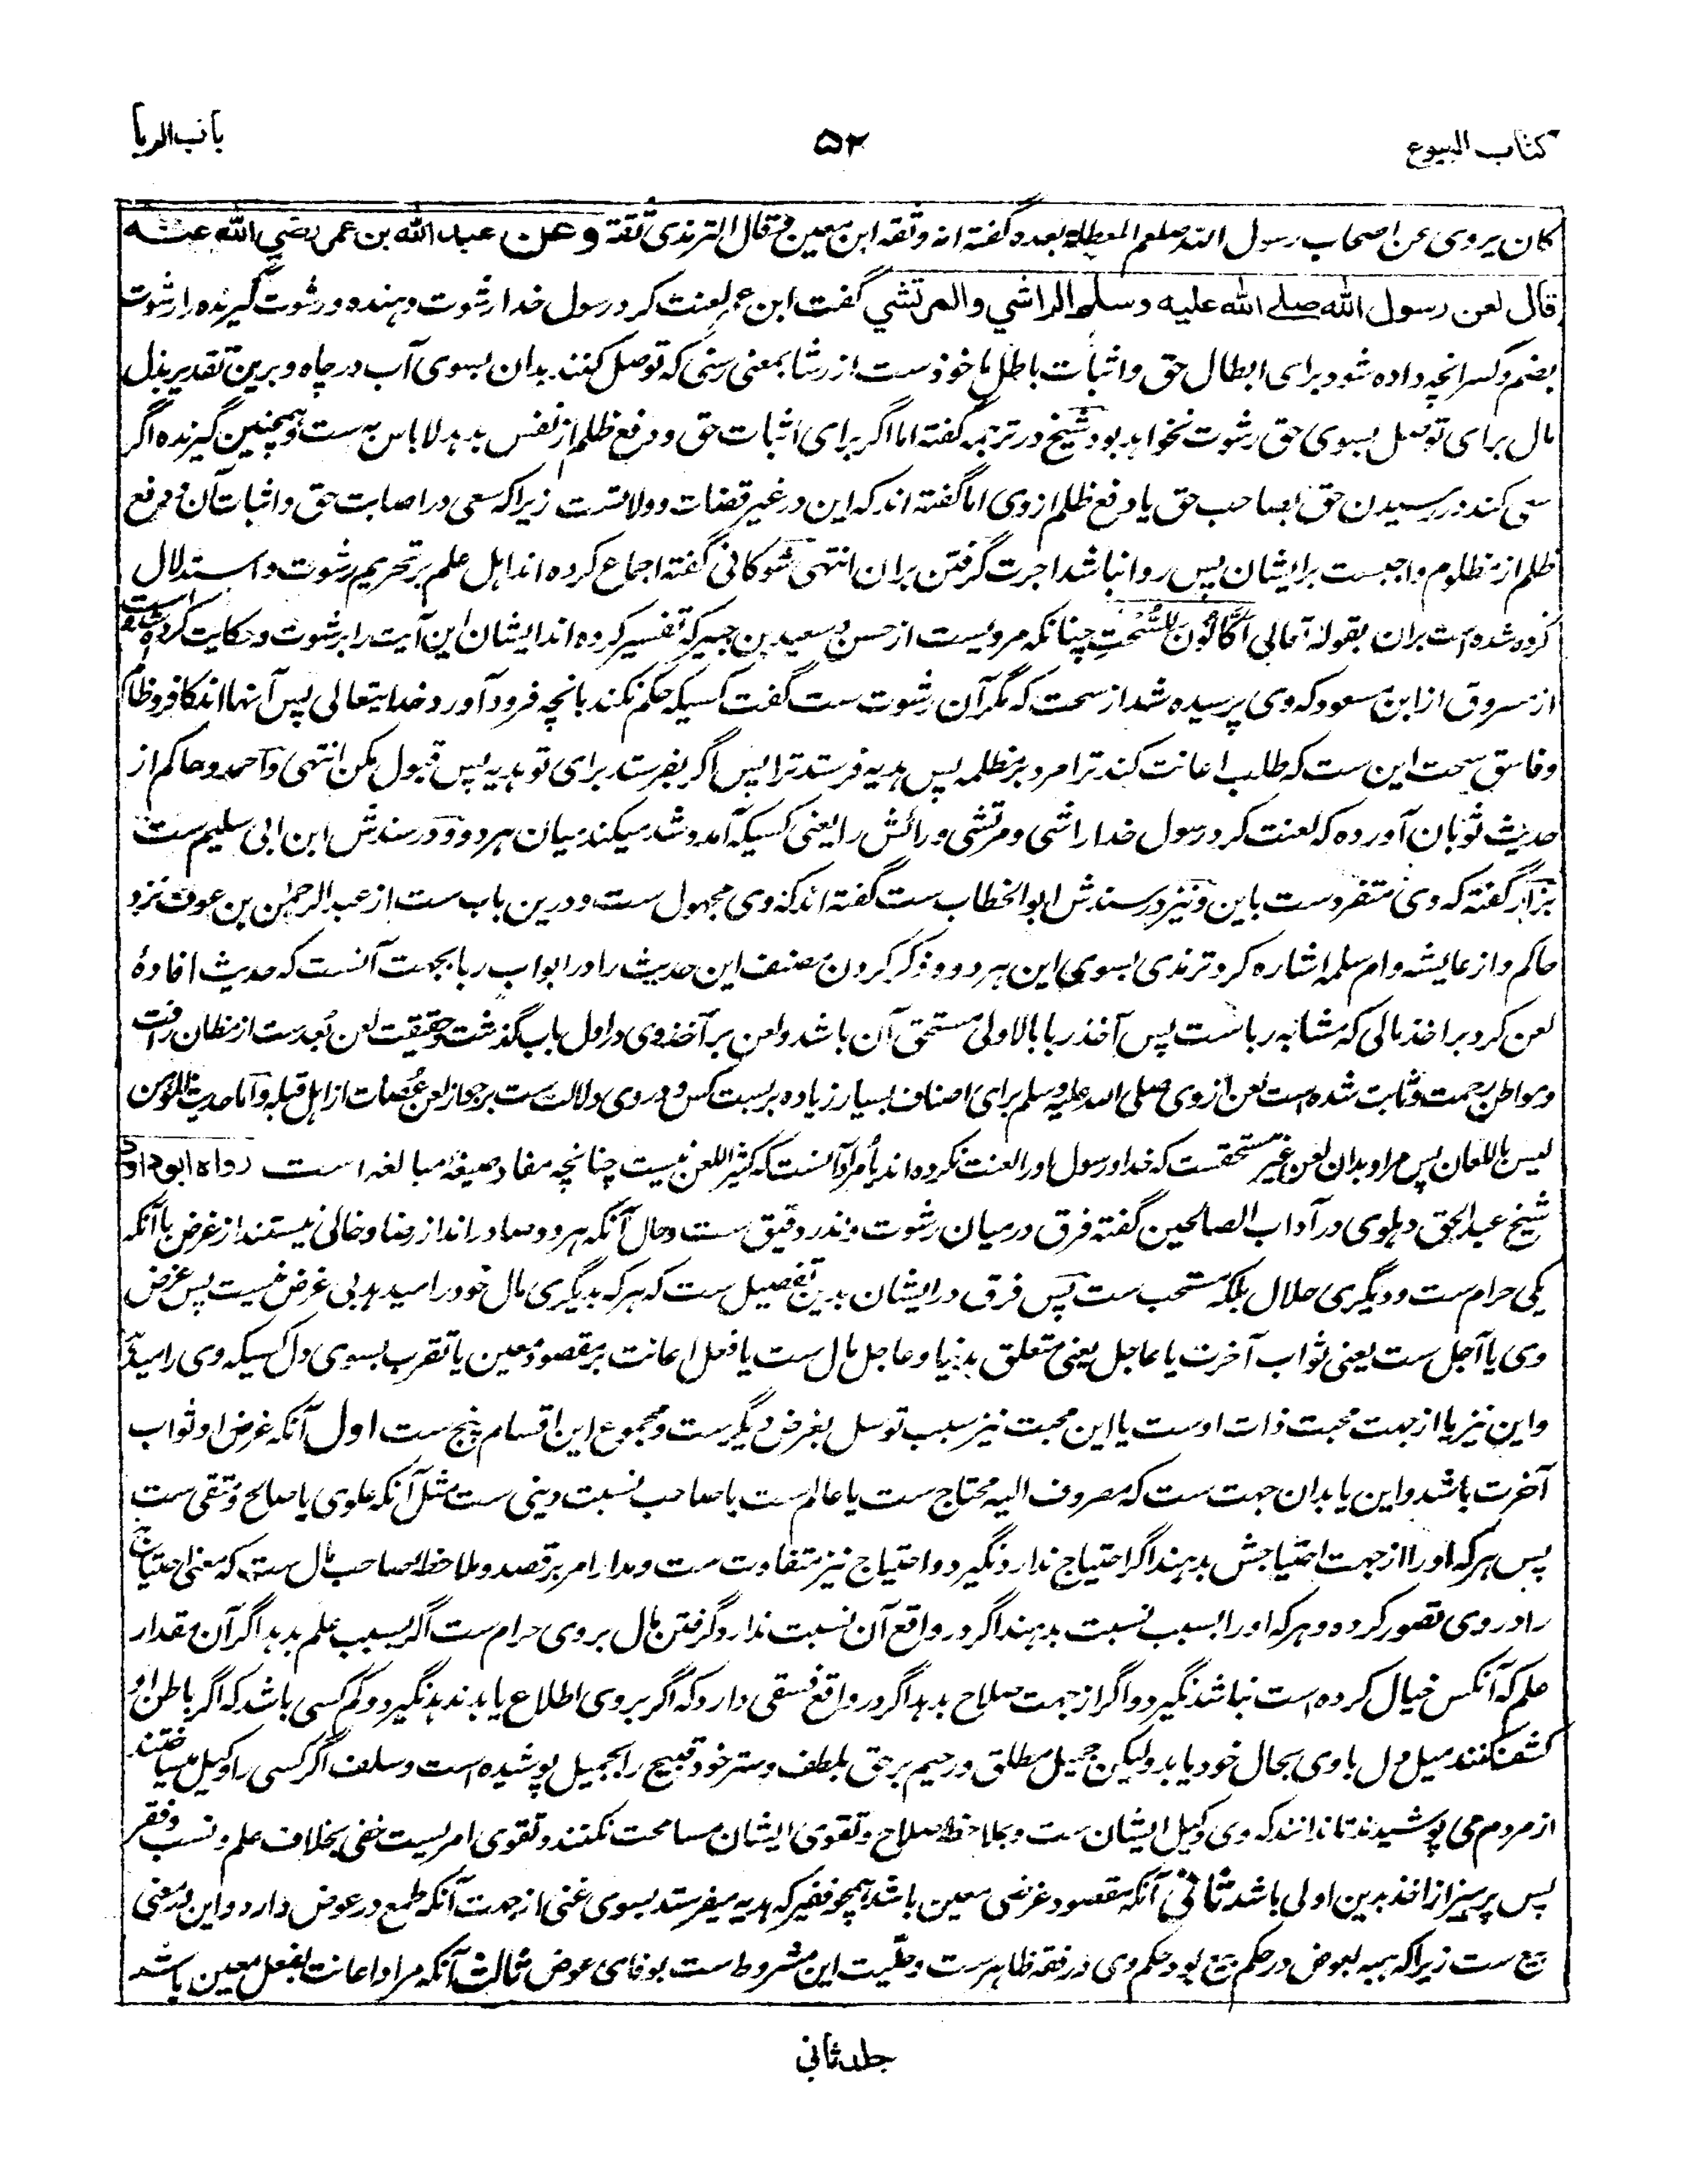 کتاب البیوع
۵۲
باب الربا
کان یروی عن اصحاب رسول الله صلعم المعطلة بعده گفته انه وثقه ابن معین و قال الترمذی ثقة وعن عبد الله بن عمر رضي الله عنه
قال لعن رسول الله صلے الله علیه وسلم الراشي والمرتشي گفت ابن عمر لعنت کرد رسول خدا رشوت دهنده و رشوت گیرنده را رشوت
بضم و کسر انچه داده شود برای ابطال حق و اثبات باطل ماخوذ ست از رشا بمعنی رسنی که توصل کنند بدان بسوی آب در چاه و برین تقدیر بذل
مال برای توصل بسوی حق رشوت نخواهد بود شیخ در ترجمه گفته اما اگر برای اثبات حق و دفع ظلم از نفس بدهد لا باس به ست و همچنین گیرنده اگر
سعی کند در رسیدن حق بصاحب حق یا دفع ظلم از وی اما گفته اند که این در غیر قضات و ولاتست زیرا که سعی در اصابت حق و اثبات آن و دفع
ظلم از مظلوم واجبست بر ایشان پس روا نباشد اجرت گرفتن بران انتهی شوکانی گفته اجماع کرده اند اهل علم بر تحریم رشوت و استدلال
کرده شده است بران بقوله تعالی اَکَّالُونَ لِلسُّحْتِ چنانکه مرویست از حسن و سعید بن جبیر که تفسیر کرده اند ایشان این آیت را برشوت و حکایت کرده شده است
از مسروق از ابن مسعود که وی پرسیده شد از سحت که مگر آن رشوت ست گفت کسیکه حکم نکند بانچه فرود آورد خدایتعالی پس آنها اند کافر و ظالم
و فاسق سحت این ست که طلب اعانت کند ترا مرد بر مظلمه پس هدیه فرستد ترا پس اگر بفرستد برای تو هدیه پس قبول مکن انتهی و احمد و حاکم از
حدیث ثوبان آورده که لعنت کرد رسول خدا راشی و مرتشی و رائش را یعنی کسیکه آمد و شد میکند میان هر دو و در سندش ابن ابی سلیم ست
بزار گفته که وی متفرد ست باین و نیز در سندش ابو الخطاب ست گفته اند که وی مجهول ست و درین باب ست از عبد الرحمن بن عوف نزد
حاکم و از عایشه و ام سلمه اشاره کرد ترمذی بسوی این هر دو و ذکر کردن مصنف این حدیث را در ابواب ربا بجهت آنست که حدیث افادهٔ
لعن کرد بر اخذ مالی که مشابه ربا ست پس آخذ ربا بالاولی مستحق آن باشد و لعن بر آخذ وی در اول باب گذشت و حقیقت لعن بُعد ست از مظان رافت
و مواطن رحمت و ثابت شده است لعن از وی صلی الله علیه وسلم برای اصناف بسیار زیاده بر بیست کس و در وی دلالت ست بر جواز لعن عُصات از اهل قبله و اما حدیث المومن
لیس باللعان پس مراد بدان لعن غیر مستحقست که خدا و رسول او را لعنت نکرده اند یا مراد آنست که کثیر اللعن نیست چنانچه مفاد صیغهٔ مبالغه است رواه ابو داود
شیخ عبد الحق دهلوی در آداب الصالحین گفته فرق درمیان رشوت و نذر دقیق ست و حال آنکه هر دو صادر اند از رضا و خالی نیستند از غرض با آنکه
یکی حرام ست و دیگری حلال بلکه مستحب ست پس فرق در ایشان بدین تفصیل ست که هر که بدیگری مال خود را میدهد بی غرض نیست پس غرض
وی یا آجل ست یعنی ثواب آخرت یا عاجل یعنی متعلق بدنیا و عاجل مال ست یا فعل اعانت بر مقصود معین یا تقرب بسوی دل کسیکه وی را میدهد
و این نیز یا از جهت محبت ذات اوست یا این محبت نیز سبب توسل بغرض دیگریست و مجموع این اقسام پنج ست اول آنکه غرض او ثواب
آخرت باشد و این یا بدان جهت ست که مصروف الیه محتاج ست یا عالم ست یا صاحب نسبت دینی ست مثل آنکه علوی یا صالح و متقی ست
پس هر که او را از جهت احتیاجش بدهند اگر احتیاج ندارد نگیرد و احتیاج نیز متفاوت ست و مدار امر بر قصد و ملاحظهٔ صاحب مال ست که معنی احتیاج
را در وی تصور کرده و هر که او را بسبب نسبت بدهند اگر در واقع آن نسبت ندارد گرفتن مال بر وی حرام ست اگر بسبب علم بدهد اگر آن مقدار
علم که آنکس خیال کرده است نباشد نگیرد و اگر از جهت صلاح بدهد اگر در واقع فسقی دارد که اگر بر وی اطلاع یابد ندهد نگیرد و کم کسی باشد که اگر باطن او
کشف کنند میل دل با وی بحال خود یابد ولیکن جمیل مطلق و رحیم بر حق بلطف و ستر خود قبیح را بجمیل پوشیده است و سلف اگر کسی را وکیل میساختند
از مردم می پوشیدند تا ندانند که وی وکیل ایشان ست و بملاحظهٔ صلاح و تقوی ایشان مسامحت نکنند و تقوی امریست خفی بخلاف علم و نسب و فقر
پس پرهیز از اخذ بدین اولی باشد ثانی آنکه مقصود غرضی معین باشد همچو فقیر که هدیه میفرستد بسوی غنی از جهت آنکه طمع در عوض دارد و این در معنی
بیع ست زیرا که هبه بعوض در حکم بیع بود حکم وی در فقه ظاهر ست و حلّیت این مشروط ست بوفای عوض ثالث آنکه مراد اعانت بفعل معین باشد
جلد ثانی